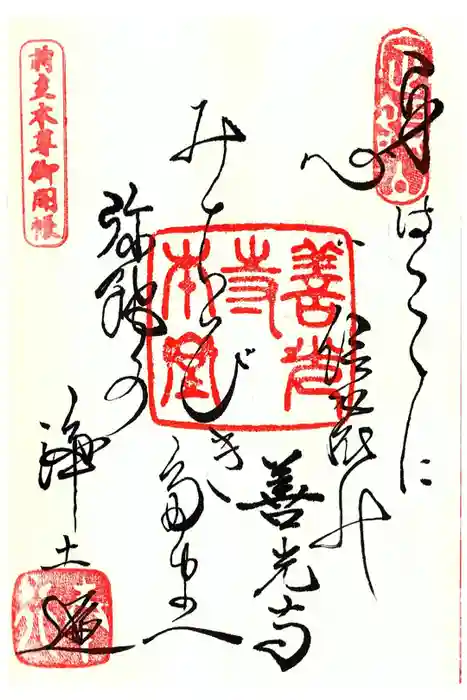 身はこゝに
心は信濃の
善光寺
みちびき
たまへ
弥陀の
浄土
善光寺本堂
前立本尊御開帳